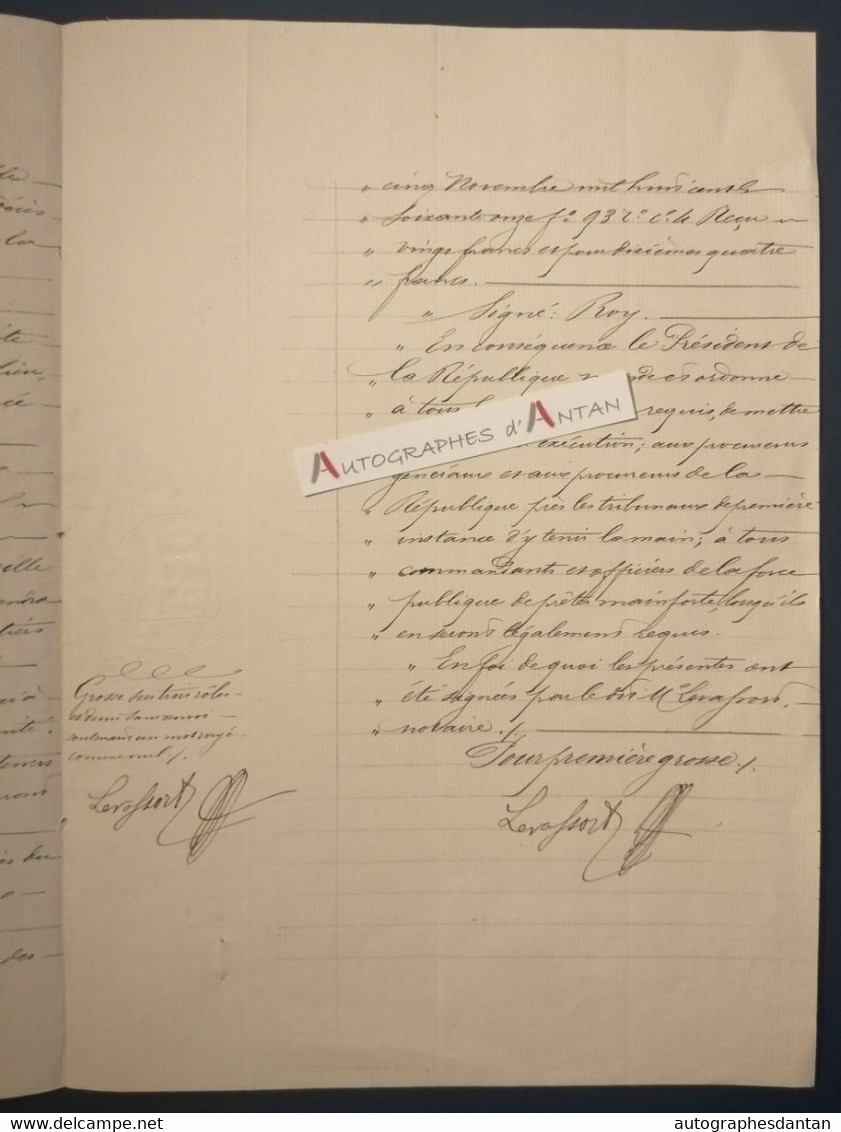 " cinq Novembre mil huit cent
" soixante onze fo. 93 Ro. Co. 4 Reçu
" vingt francs et pour décimes quatre
" francs.
" Signé: Roy.
" En conséquence le Président de
" la République mande et ordonne
" à tous requis, de mettre
exécution; aux procureurs
généraux et aux procureurs de la
" République près les tribunaux de première
" instance d'y tenir la main; à tous
" commandants et officiers de la force
" publique de prêter main forte, lorsqu'ils
" en seront légalement requis.
" En foi de quoi les présentes ont
" été signées par le dit Me Levassort,
" notaire ./.
Pour première grosse ./.
Levassort
Grosse sur trois rôles
et demi sans renvoi
contenant un mot rayé
comme nul ./.
Levassort
AUTOGRAPHES d'ANTAN
delcampe.net
autographesdantan